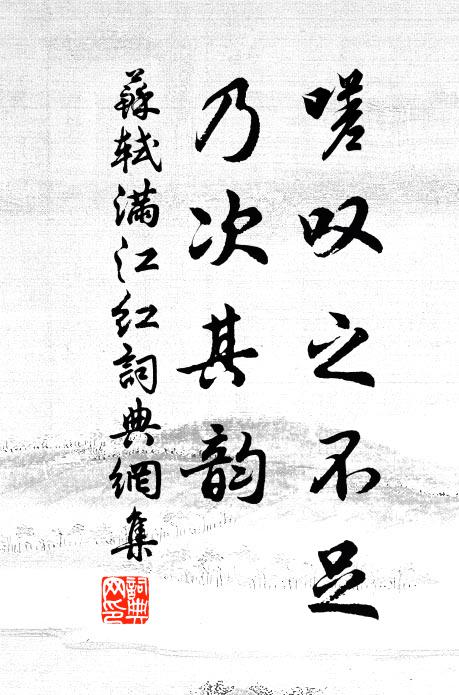 嗟叹之不足
乃次其韵
蘇軾滿江红詞典網集
詞典网印